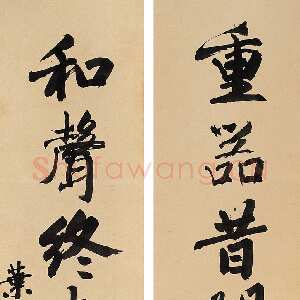 重器昔
和聲終
葉
Shufawang.cn